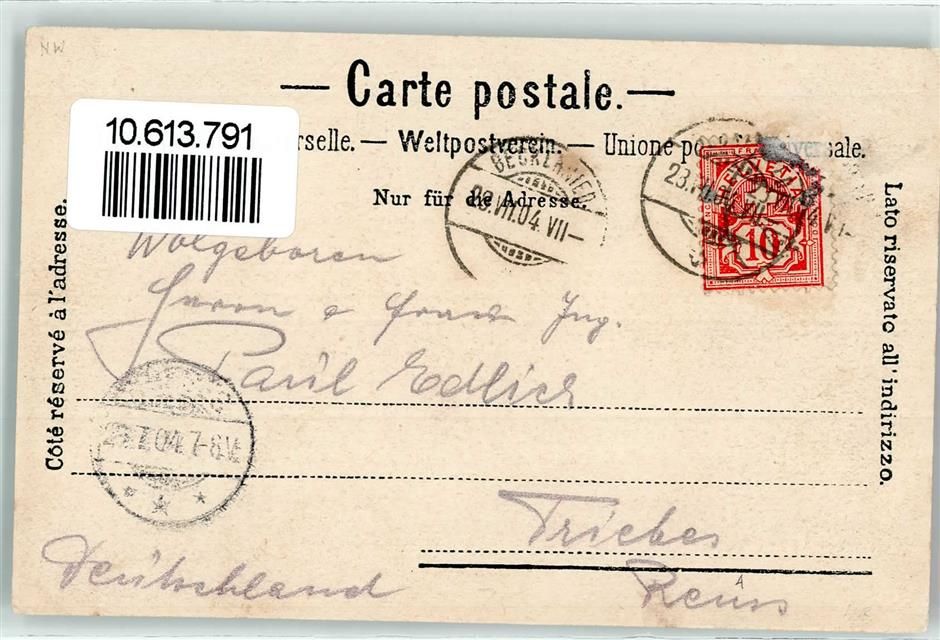 NW
— Carte postale. —
10.613.791
rselle. — Weltpostverein. — Unione po
sale.
BECKENRIED
23.VII.04.VII—
23.VII.04.VII
Nur für die Adresse.
Côté réservé à l'adresse.
Lato riservato all' indirizzo.
HELVETIA
10
Wolgeboren
Herrn & Frau Ing.
Paul Edlich
04.7-8V.
Triebes
Deütschland
Reuss